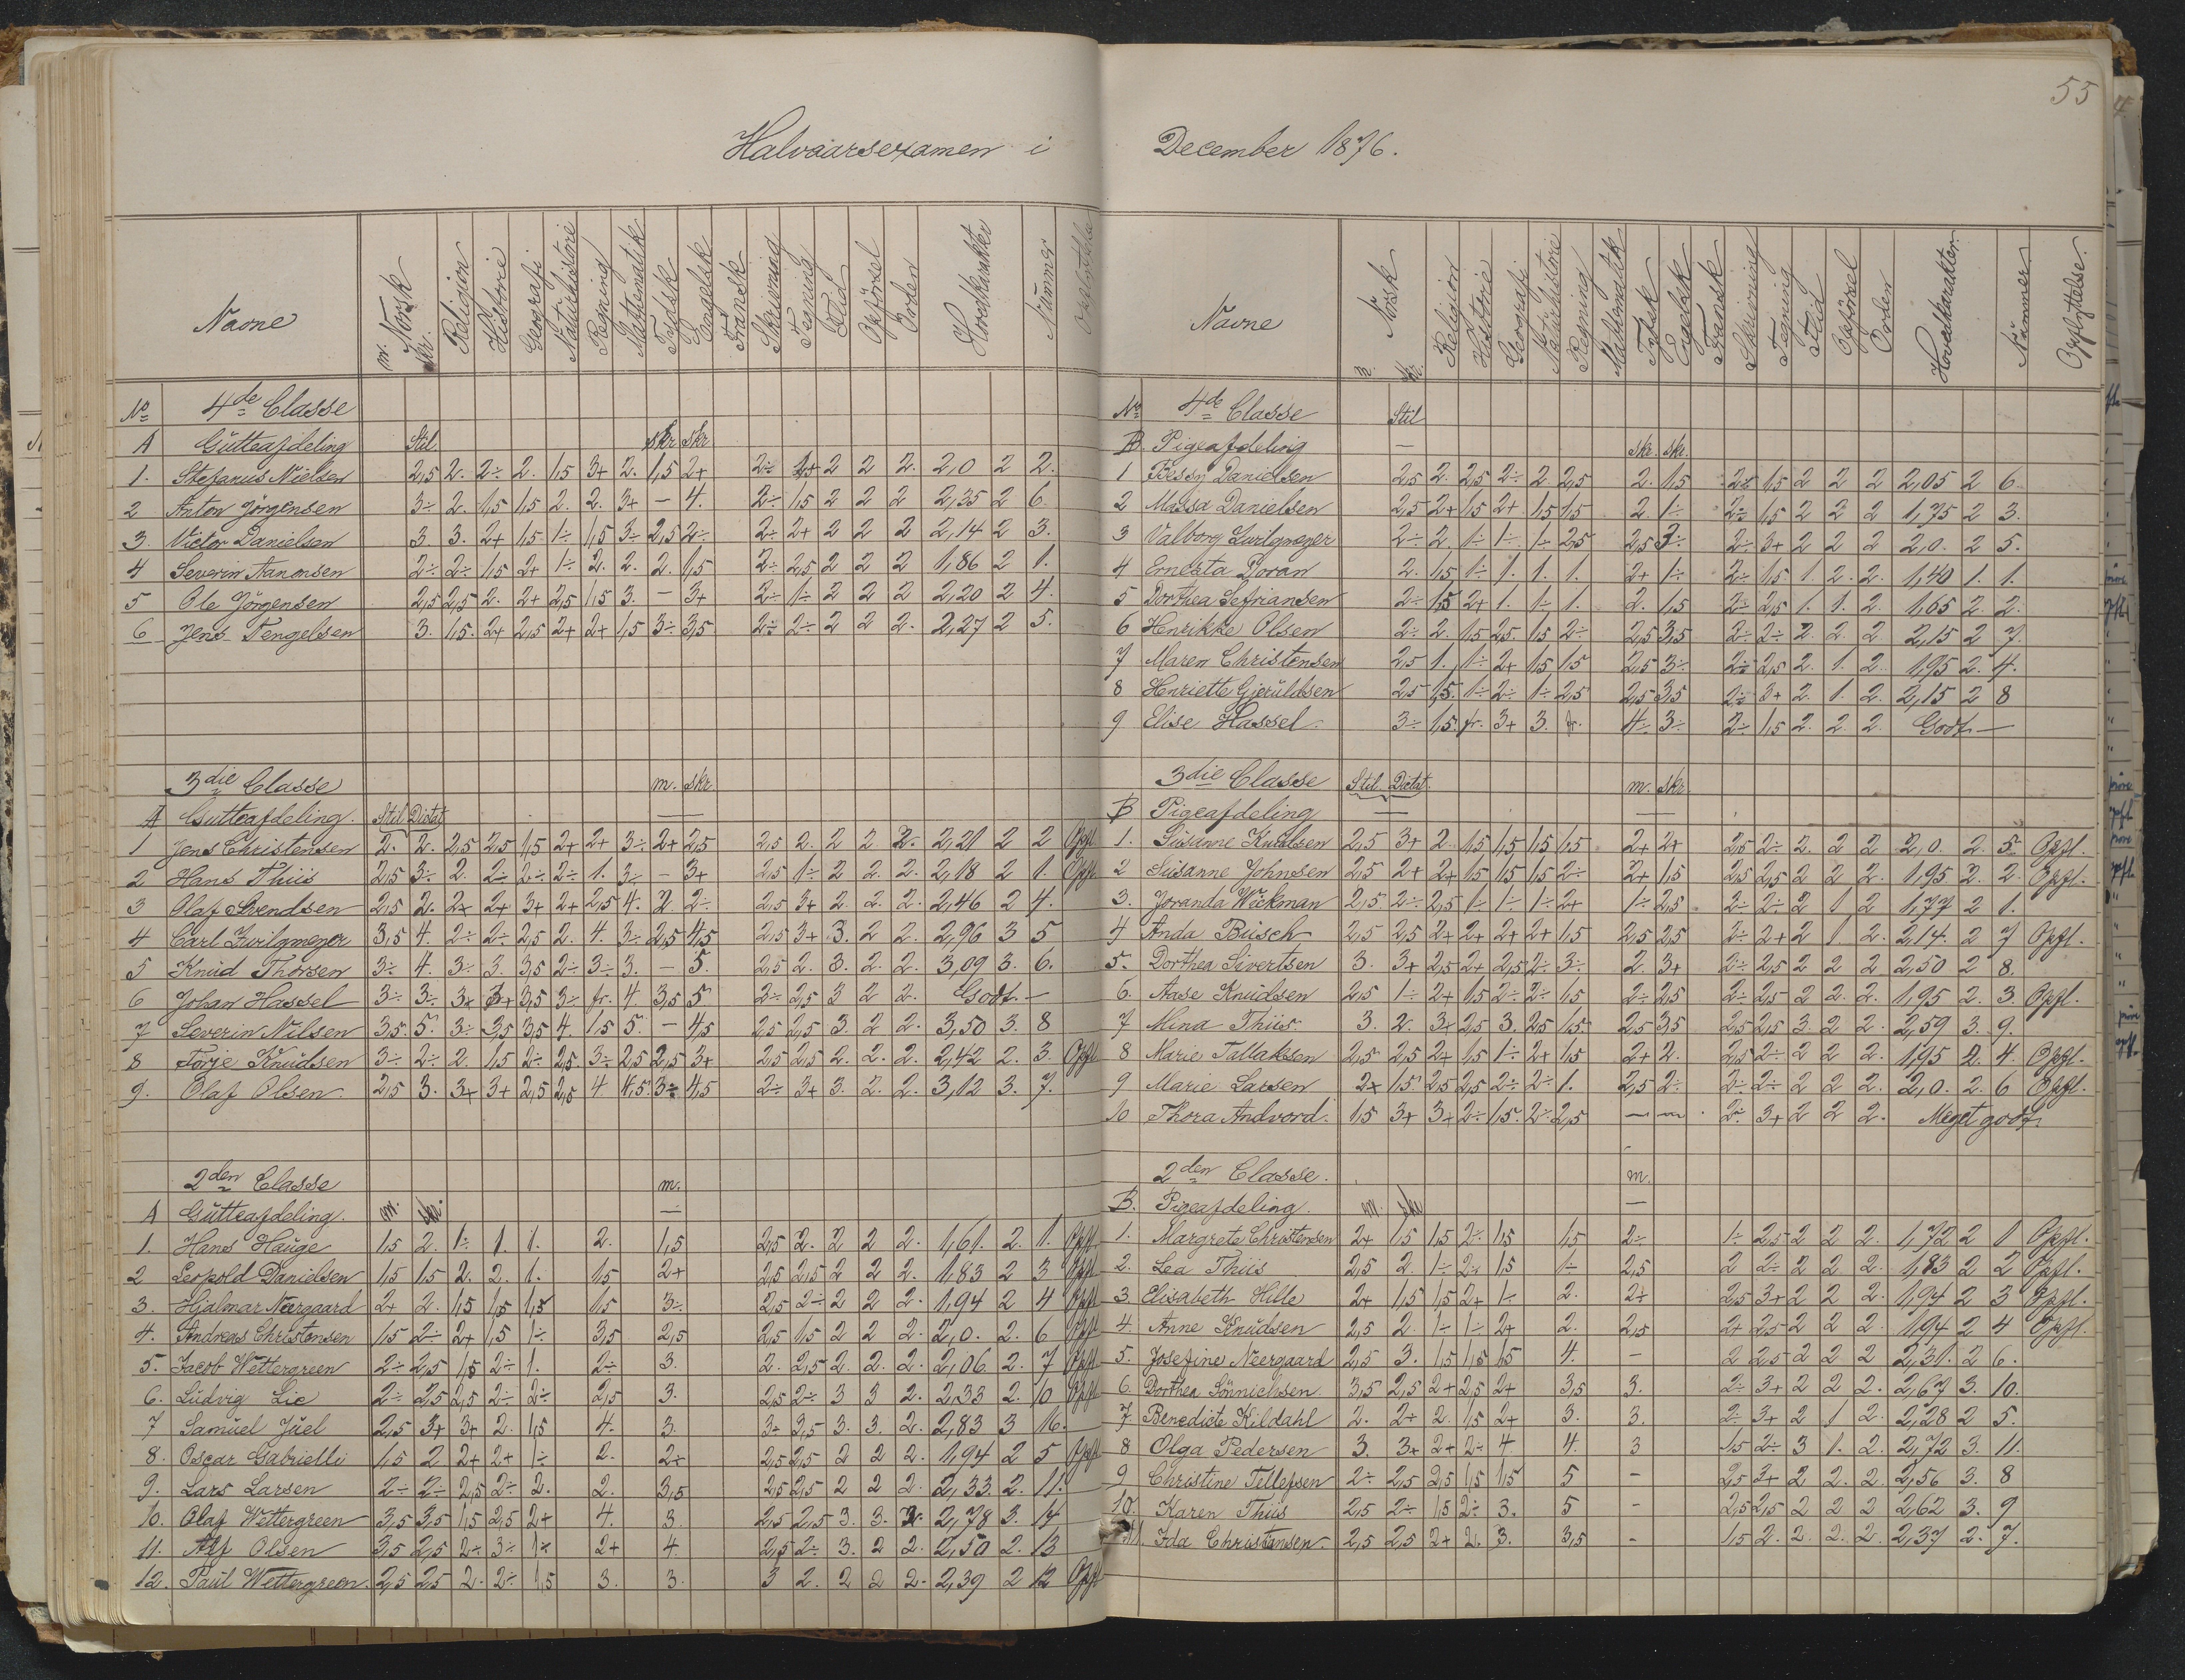 55
Halvaarsexamen i December 1876.
Navne m. Norsk skr. Religion Historie Geografi Naturhistorie Regning Mathematik Tydsk Engelsk Fransk Skrivning Tegning Flid Opførsel Orden Hovedkarakter Nummer
№ 4de Classe
A Gutteafdeling Stil. skr skr
1. Stefanus Nielsen 2,5 2. 2÷ 2. 1,5 3+ 2. 1,5 2+ 2÷ 1+ 2 2 2. 2,0 2 2.
2 Anton Jörgensen 3÷ 2. 1,5 1,5 2. 2. 3+ — 4. 2÷ 1,5 2 2 2 2,35 2 6.
3. Victor Danielsen 3 3. 2+ 1,5 1÷ 1,5 3÷ 2,5 2÷ 2÷ 2+ 2 2 2 2,14 2 3.
4 Severin Aanonsen 2÷ 2÷ 1,5 2+ 1÷ 2. 2. 2. 1,5 2÷ 2,5 2 2 2 1,86 2 1.
5 Ole Jörgensen 2,5 2,5 2. 2+ 2,5 1,5 3. — 3+ 2÷ 1÷ 2 2 2 2,20 2 4.
6 Jens Tengelsen 3. 1,5. 2+ 2,5 2+ 2+ 1,5 3÷ 3,5 2÷ 2÷ 2 2 2. 2,27 2 5.
3die Classe m. skr
A Gutteafdeling. Stil Dictat —
1 Jens Christensen 2. 2. 2,5 2,5 1,5 2+ 2+ 3÷ 2+ 2,5 2,5 2. 2 2 2. 2,21 2 2 Opfl
2 Hans Thiis 2,5 3÷ 2. 2÷ 2÷ 2÷ 1. 3÷ — 3+ 2,5 1÷ 2 2. 2. 2,18 2 1. Opfl
3 Olaf Svendsen 2,5 2. 2+ 2+ 3+ 2+ 2,5 4. 2 2÷ 2,5 3+ 2. 2. 2. 2,46 2 4.
4 Carl Zwilgmeyer 3,5 4. 2÷ 2÷ 2,5 2. 4. 3÷ 2,5 4,5 2,5 3+ 3. 2 2. 2,96 3 5
5 Knud Thorsen 3÷ 4. 3÷ 3. 3,5 2÷ 3÷ 3. — 5. 2,5 2. 3. 2. 2. 3,09 3. 6.
6 Johan Hassel 3÷ 3÷ 3+ 3+ 3,5 3÷ fr. 4. 3,5 5 2÷ 2,5 3 2 2. Godt —
7 Severin Nilsen 3,5. 5. 3÷ 3,5 3,5 4. 1,5 5. — 4,5 2,5 2,5 3. 2 2. 3,50 3. 8
8 Torje Knudsen 3÷ 2÷ 2. 1,5 2÷ 2,5. 3÷ 2,5 2,5 3+ 2,5 2,5 2. 2. 2. 2,42 2. 3. Opfl
9. Olaf Olsen 2,5 3. 3+ 3+ 2,5 2,5 4 4,5 3÷ 4,5 2÷ 3+ 3. 2. 2. 3,12 3. 7.
2den Classe m.
A Gutteafdeling. m. skr. —
1. Hans Hauge 1,5 2. 1÷ 1. 1. 2. 1,5 2,5 2. 2 2 2. 1,61. 2. 1. Opfl.
2 Leopold Danielsen 1,5 1,5 2. 2. 1. 1,5 2+ 2,5 2,5 2 2 2. 1,83 2 3 Opfl
3. Hjalmar Neergaard 2+ 2. 1,5 1,5 1,5 1,5 3÷ 2,5 2÷ 2 2 2. 1,94 2 4 Opfl
4. Andreas Christensen 1,5 2÷ 2+ 1,5 1÷ 3,5 2,5 2,5 1,5 2 2 2. 2,0. 2. 6 Opfl
5. Jacob Wettergreen 2÷ 2,5 1,5 2÷ 1. 2÷ 3. 2. 2,5 2. 2. 2. 2,06 2. 7 Opfl
6. Ludvig Lie 2÷ 2,5 2,5 2÷ 2÷ 2,5 3. 2,5 2÷ 3 3 2. 2,33 2. 10 Opfl
7 Samuel Juel 2,5 3+ 3+ 2. 1,5 4. 3. 3÷ 3,5 3. 3. 2. 2,83 3 16.
8. Oscar Gabrielli 1,5 2 2+ 2+ 1÷ 2. 2+ 2,5 2,5 2 2 2. 1,94 2 5 Opfl
9. Lars Larsen 2÷ 2÷ 2,5 2÷ 2. 2. 3,5 2,5 2,5 2 2 2. 2,33 2. 11.
10. Olaf Wettergreen 3,5 3,5 1,5 2,5 2+ 4. 3. 2,5 2,5 3. 3. 2. 2,78 3. 14
11. Alf Olsen 3,5 2,5 2÷ 3÷ 1÷ 2+ 4. 2,5 2÷ 3. 2 2. 2,50 2. 13
12. Paul Wettergreen 2,5 2,5 2. 2÷ 1,5 3. 3. 3 2. 2 2 2. 2,39 2 12 Opfl
Navne m. Norsk skr. Religion Historie Geografi Naturhistorie Regning Mathematik Tydsk Engelsk Fransk Skrivning Tegning Flid Opførsel Orden Hovedkarakter. Nummer. Opflyttelse.
№ 4de Classe Stil
B. Pigeafdeling — skr. skr.
1 Bessy Danielsen 2,5 2. 2,5 2÷ 2 2,5 2. 1,5 2÷ 1,5 2 2 2 2,05 2 6
2 Massa Danielsen 2,5 2+ 1,5 2+ 1,5 1,5 2. 1÷ 2÷ 1,5 2 2 2 1,75 2 3.
3 Valborg Zwilgmeyer 2÷ 2. 1÷ 1÷ 1÷ 2,5 2,5 3÷ 2÷ 3+ 2 2 2 2,0. 2 5.
4 Ernesta Doran 2. 1,5 1÷ 1. 1. 1. 2+ 1÷ 2÷ 1,5 1. 2. 2. 1,40 1. 1.
5 Dorthea Sefriansen 2÷ 1,5 2+ 1. 1÷ 1. 2. 1,5 2÷ 2,5 1. 1. 2. 1,65 2. 2.
6 Henrikke Olsen 2÷ 2. 1,5 2,5 1,5 2÷ 2,5 3,5 2÷ 2÷ 2. 2. 2 2,15 2 7.
7 Maren Christensen 2,5 1. 1÷ 2+ 1,5 1,5 2,5 3÷ 2÷ 2,5 2. 1. 2. 1,95 2. 4.
8 Henriette Gjeruldsen 2,5 1,5. 1÷ 2÷ 1÷ 2,5 2,5 3,5 2÷ 3+ 2. 1. 2. 2,15 2 8
9 Elise Hassel. 3÷ 1,5. fr. 3+ 3. fr. 4÷ 3÷ 2÷ 1,5 2. 2. 2. Godt —
3die Classe Stil Dictat. m. skr
B Pigeafdeling — —
1. Susanne Knudsen 2,5 3+ 2. 1,5 1,5 1,5 1,5 2+ 2+ 2,5 2÷ 2. 2 2 2,0. 2. 5 Opfl.
2 Susanne Johnsen 2,5 2+ 2+ 1,5 1,5 1,5 2÷ 2+ 1,5 2,5 2,5 2 2. 2. 1,95 2. 2. Opfl.
3. Joranda Wickman 2,5 2÷ 2,5 1÷ 1÷ 1÷ 2+ 1÷ 2,5 2÷ 2÷ 2 1 2 1,77 2 1.
4 Anda Busch 2,5 2,5 2+ 2+ 2+ 2+ 1,5 2,5 2,5 2÷ 2+ 2 1. 2. 2,14. 2 7 Opfl.
5. Dorthea Sivertsen 3. 3+ 2,5 2+ 2,5 2÷ 3÷ 2. 3+ 2÷ 2,5 2 2 2 2,50 2 8.
6. Aase Knudsen 2,5 1÷ 2+ 1,5 2÷ 2÷ 1,5 2÷ 2,5 2÷ 2,5 2 2. 2. 1,95 2. 3. Opfl.
7 Mina Thiis. 3. 2. 3+ 2,5 3. 2,5 1,5. 2,5 3,5 2,5 2,5 3. 2 2. 2,59 3. 9.
8 Marie Taltaksen 2,5 2,5 2+ 1,5 1÷ 2+ 1,5 2+ 2. 2,5 2÷ 2 2 2. 1,95 2. 4. Opfl.
9 Marie Larsen 2+ 1,5 2,5 2,5 2÷ 2÷ 1. 2,5 2÷ 2÷ 2÷ 2 2. 2. 2,0. 2. 6 Opfl.
10 Thora Andvord. 1,5 3+ 3+ 2÷ 1,5. 2÷ 2,5 — — 2÷ 3+ 2 2 2. Meget godt.
2den Classe. m.
B. Pigeafdeling. m. skr —
1. Margrete Christensen 2+ 1,5 1,5 2÷ 1,5 1,5 2÷ 1÷ 2,5 2 2 2. 1,72 2 1 Opfl.
2. Lea Thiis 2,5 2. 1÷ 2÷ 1,5 1÷ 2,5 2 2÷ 2 2. 2. 1,83 2 2 Opfl.
3 Elisabeth Hille 2+ 1,5 1,5 2+ 1÷ 2. 2+ 2,5 3+ 2 2 2. 1,94 2 3 Opfl.
4. Anne Knudsen 2,5 2. 1÷ 1÷ 2+ 2. 2,5 2+ 2,5 2 2 2. 1,94 2 4 Opfl.
5. Josefine Neergaard 2,5 3. 1,5 1,5 1,5 4. — 2 2,5 2 2 2 2,31. 2 6.
6. Dorthea Sönnichsen 3,5 2,5 2+ 2,5 2+ 3,5 3. 2÷ 3+ 2 2 2. 2,67 3. 10.
7. Benedicte Kildahl 2. 2+ 2. 1,5 2+ 3. 3. 2÷ 3+ 2 1 2. 2,28 2 5.
8 Olga Pedersen 3. 3+ 2+ 2÷ 4. 4. 3 1,5 2÷ 3 1. 2. 2,72 3. 11.
9 Christine Tellefsen 2÷ 2,5 2,5 1,5 1,5 5 — 2,5 3+ 2 2. 2. 2,56 3. 8
10. Karen Thiis 2,5 2÷ 1,5 2÷ 3. 5 — 2,5 2,5 2 2 2 2,62 3. 9
11. Ida Christensen. 2,5 2,5 2+ 2. 3. 3,5 — 1,5 2. 2. 2. 2. 2,37 2. 7.